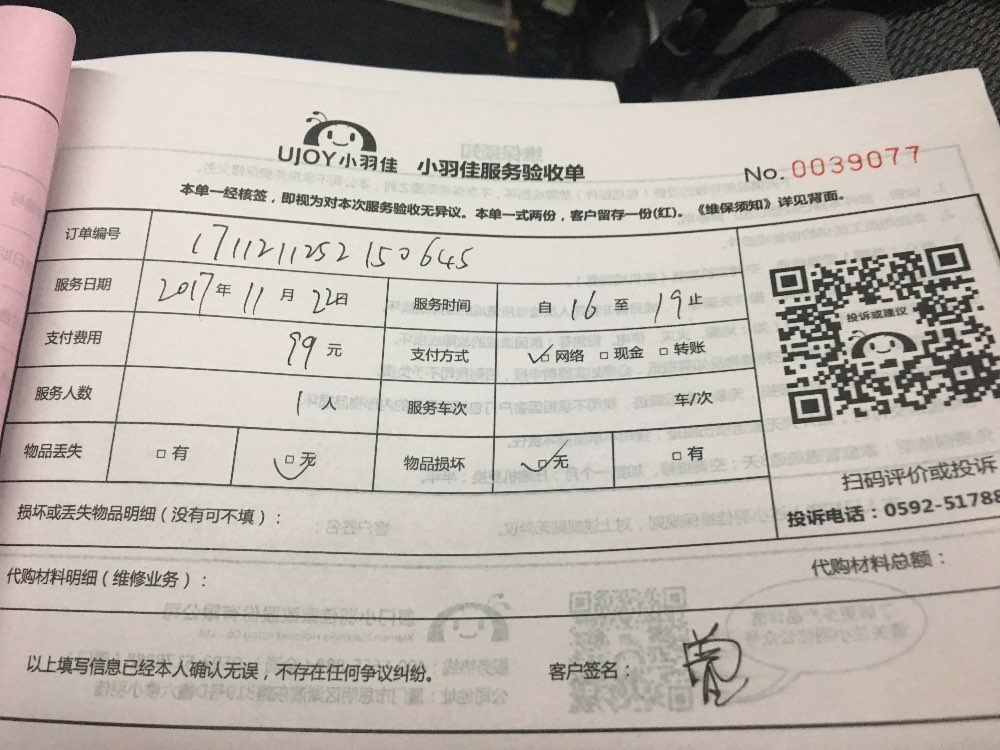 UJOY小羽佳 小羽佳服务验收单 No.0039077
本单一经核签，即视为对本次服务验收无异议。本单一式两份，客户留存一份(红)。《维保须知》详见背面。
订单编号 1711211252150645
服务日期 2017年 11 月 22日 服务时间 自 16 至 19 止
支付费用 99 元 支付方式 网络 现金 转账
服务人数 1 人 服务车次 车/次
物品丢失 有 无 物品损坏 无 有
投诉或建议
扫码评价或投诉
投诉电话：0592-51788
损坏或丢失物品明细（没有可不填）：
代购材料明细（维修业务）： 代购材料总额：
以上填写信息已经本人确认无误，不存在任何争议纠纷。 客户签名：